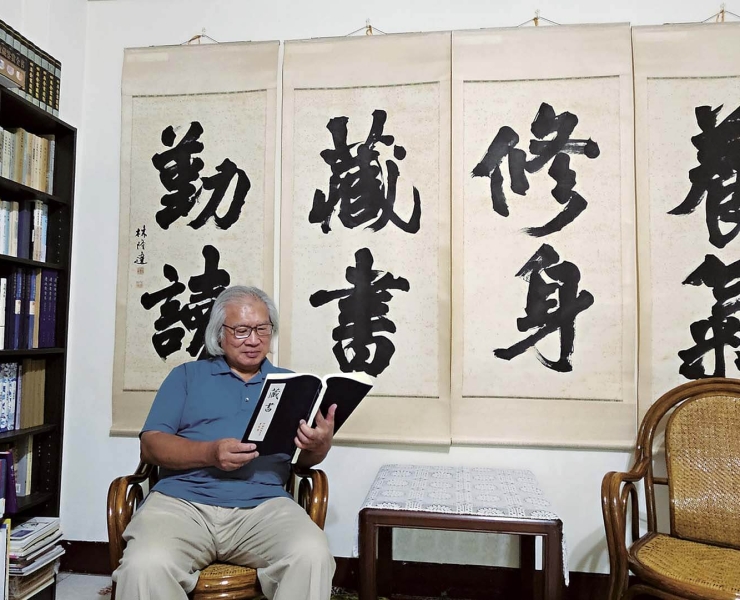 養氣
修身
藏書
勤讀
林隆達
藏書